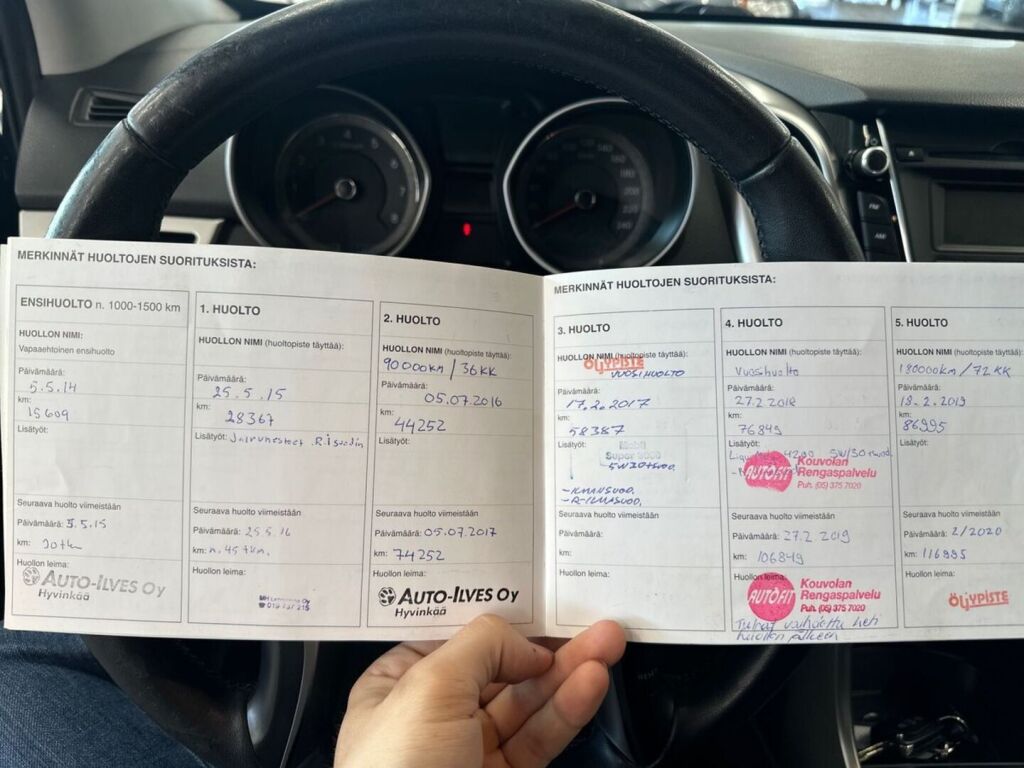 MERKINNÄT HUOLTOJEN SUORITUKSISTA:
ENSIHUOLTO n. 1000-1500 km
HUOLLON NIMI:
Vapaaehtoinen ensihuolto
Päivämäärä:
5.5.14
km:
15609
Lisätyöt:
Seuraava huolto viimeistään
Päivämäärä: 5.5.15
km: 30tkm
Huollon leima:
AUTO-ILVES OY
Hyvinkää
1. HUOLTO
HUOLLON NIMI (huoltopiste täyttää):
Päivämäärä:
25.5.15
km:
28367
Lisätyöt: Jarrunesteet
Seuraava huolto viimeistään
Päivämäärä: 25.5.16
km: n. 45tkm.
Huollon leima:
2. HUOLTO
HUOLLON NIMI (huoltopiste täyttää):
90000KM / 36KK
Päivämäärä:
05.07.2016
km:
44252
Lisätyöt:
Seuraava huolto viimeistään
Päivämäärä: 05.07.2017
km: 74252
Huollon leima:
AUTO-ILVES OY
Hyvinkää
MERKINNÄT HUOLTOJEN SUORITUKSISTA:
3. HUOLTO
HUOLLON NIMI (huoltopiste täyttää):
ÖLJYPISTE
VUOSIHUOLTO
Päivämäärä:
17.2.2017
km:
58387
Lisätyöt:
Mobil
Super 3000
5W30+suod.
-ILMANSUOD.
-R-ILMASUOD.
Seuraava huolto viimeistään
Päivämäärä:
km:
Huollon leima:
4. HUOLTO
HUOLLON NIMI (huoltopiste täyttää):
Vuosihuolto
Päivämäärä:
27.2 2018
km:
76849
Lisätyöt:
4200 5W/30+suod.
AUTOFIT
Kouvolan
Rengaspalvelu
Puh. (05) 375 7020
Seuraava huolto viimeistään
Päivämäärä: 27.2 2019
km: 106849
Huollon leima:
AUTOFIT
Kouvolan
Rengaspalvelu
Puh. (05) 375 7020
vaihdettu heti
huollon jälkeen
5. HUOLTO
HUOLLON NIMI (huoltopiste täyttää):
180000km / 72 KK
Päivämäärä:
18.2.2019
km:
86995
Lisätyöt:
Seuraava huolto viimeistään
Päivämäärä: 2/2020
km: 116995
Huollon leima:
ÖLJYPISTE
FM
AM